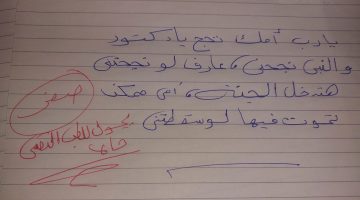 يارب أمك تحج يا دكتور
والنبي نجحني، عارف لو نجحتني
هتدخل الجنة، أمي ممكن
تموت فيها لو سقطتني
صفر
يحول للطب النفسي